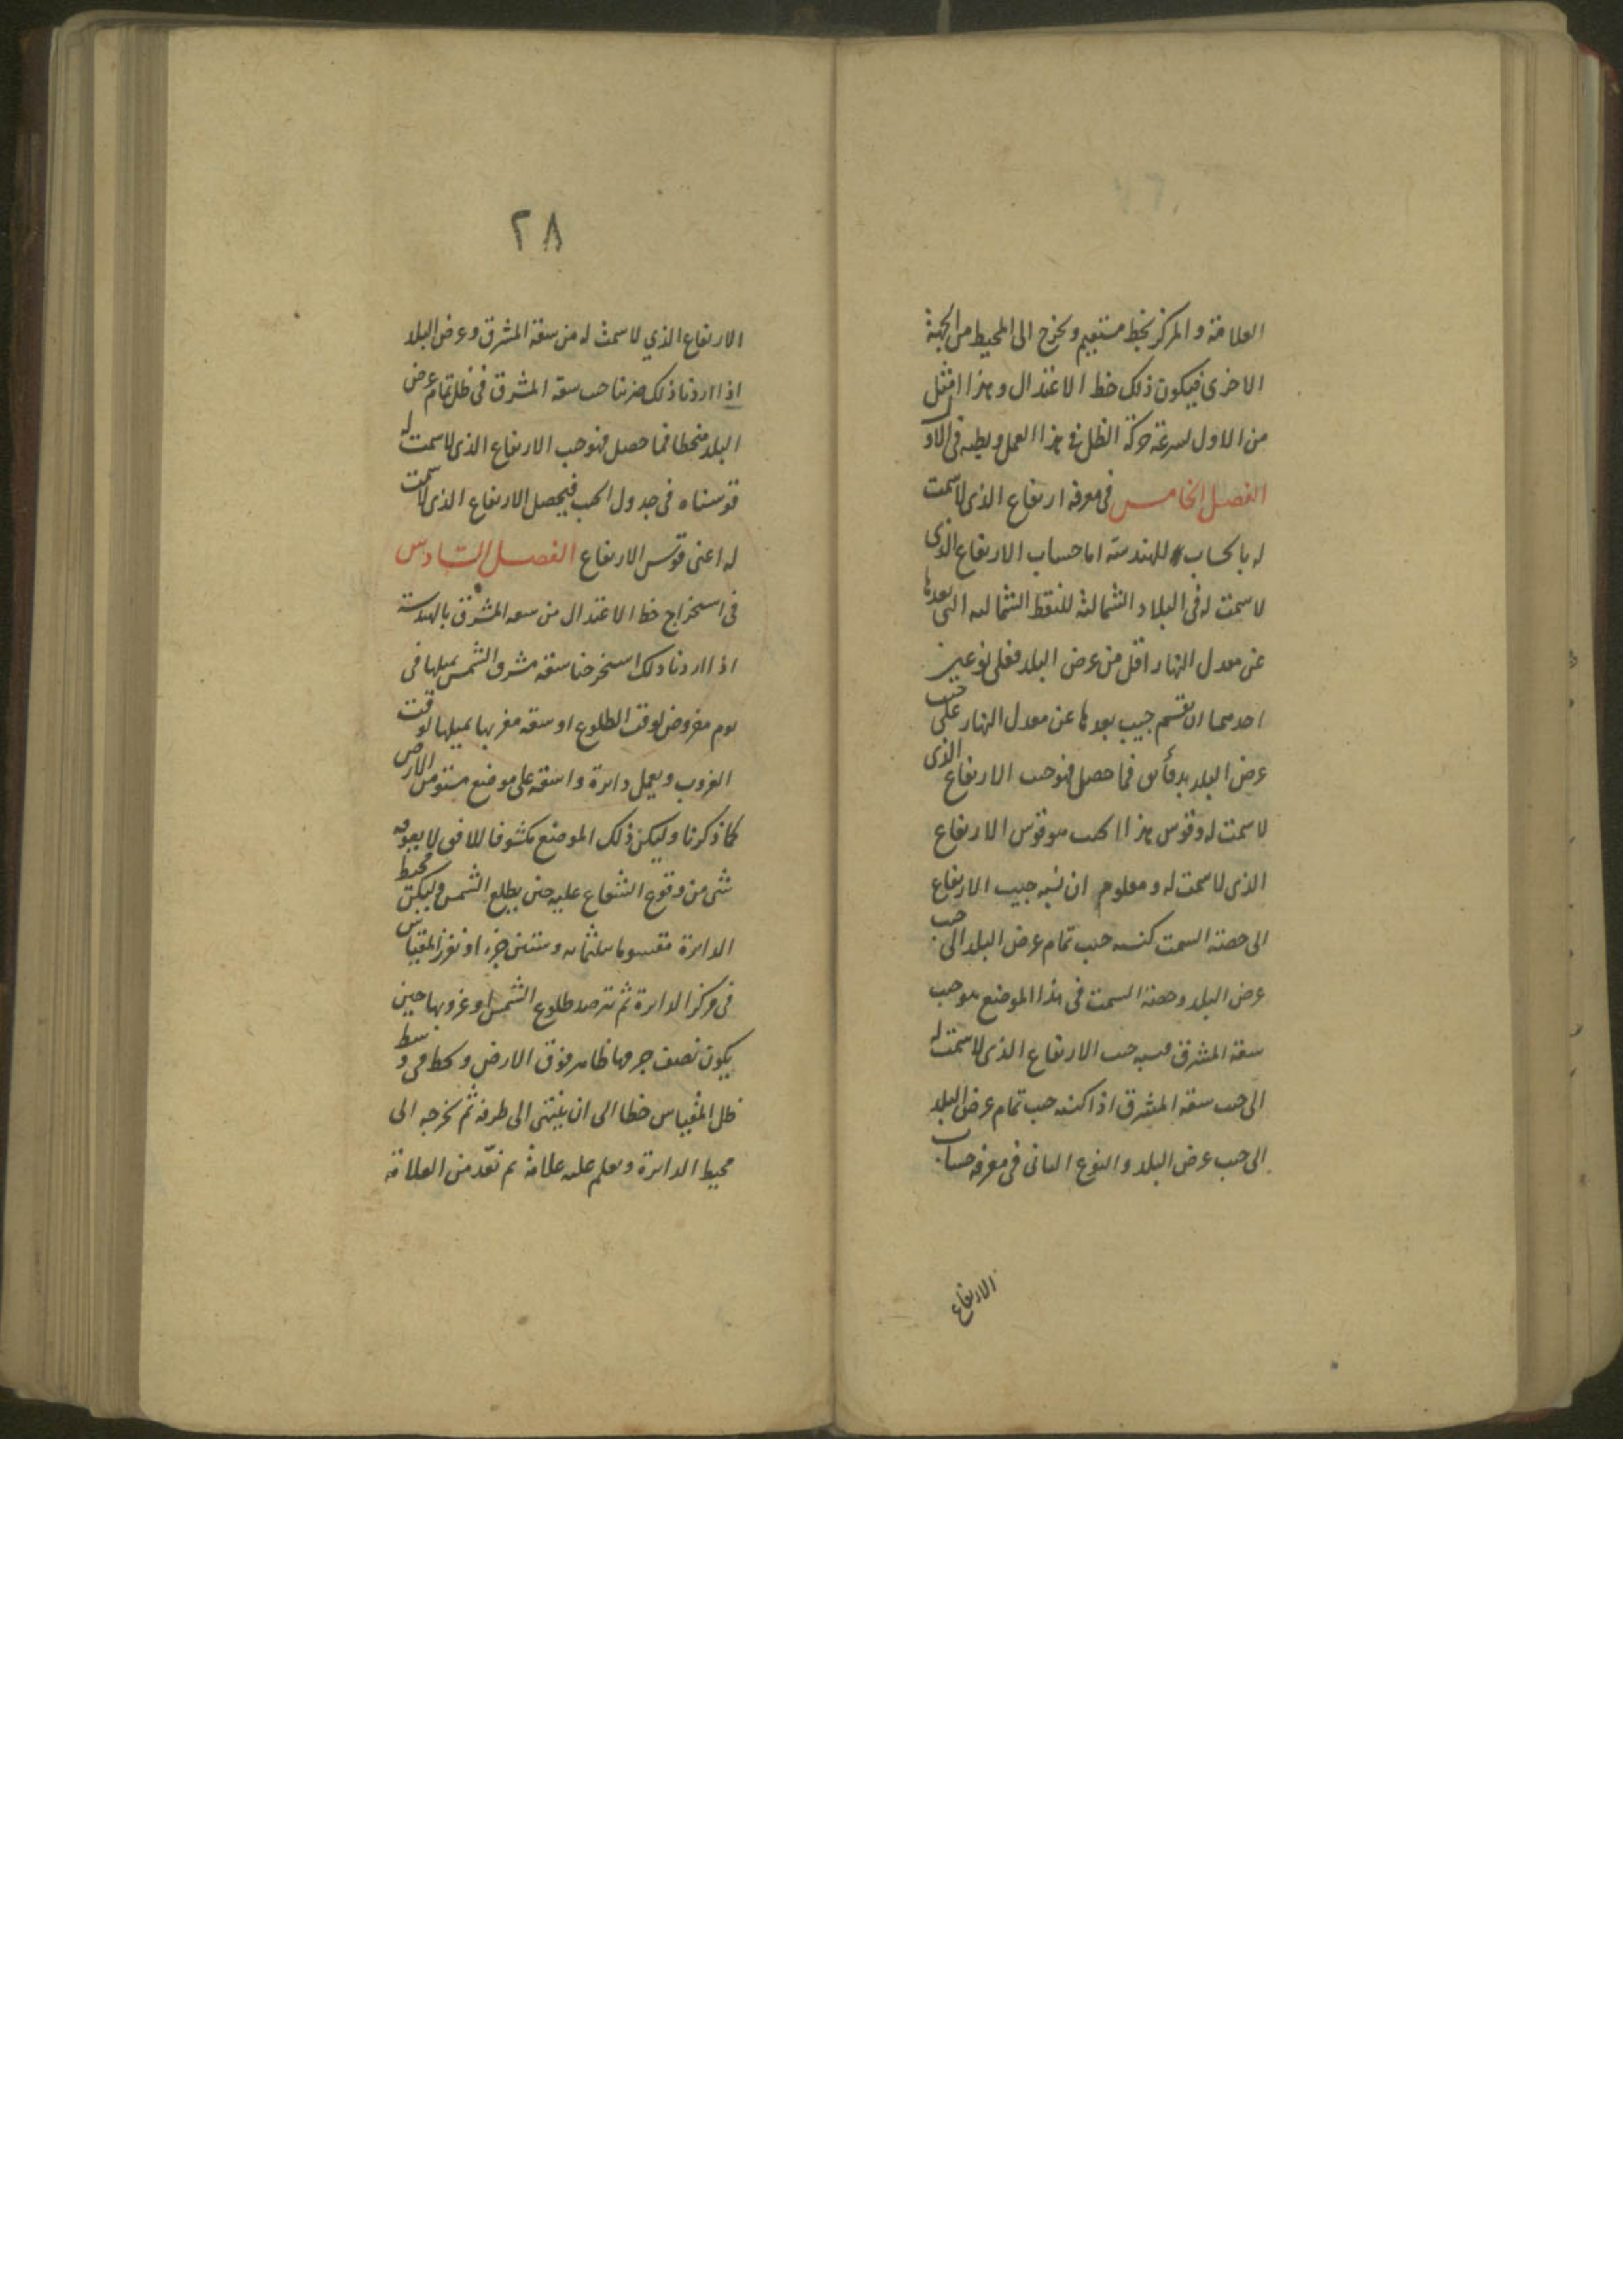 العلامة والمركز بخط مستقيم ونخرج الى المحيط من الجهة
الاخرى فيكون ذلك خط الاعتدال وهذا امثل
من الاول لسرعة حركة الظل فى هذا العمل وبطيه فى الاول
الفصل الخامس فى معرفة ارتفاع الذى لا سمت
له بالحساب للهندسة اما حساب الارتفاع الذى
لا سمت له فى البلاد الشمالية للنقط الشمالية التى بعدها
عن معدل النهار اقل من عرض البلد فعلى نوعين
احدهما ان نقسم جيب بعدها عن معدل النهار على جيب
عرض البلد فما حصل فهو جيب الارتفاع الذى
لا سمت له وقوس هذا الجيب هو قوس الارتفاع
الذى لا سمت له ومعلوم ان نسبة جيب الارتفاع
الى حصة السمت كنسبة جيب تمام عرض البلد الى جيب
عرض البلد وحصة السمت فى هذا الموضع هو جيب
سعة المشرق فنسبة جيب الارتفاع الذى لا سمت له
الى جيب سعة المشرق اذا كنسبة جيب تمام عرض البلد
الى جيب عرض البلد والنوع الثانى فى معرفة حساب
الارتفاع
٢٨
الارتفاع الذي لا سمت له من سعة المشرق وعرض البلد
اذا اردنا ذلك ضربنا جيب سعة المشرق فى ظل تمام عرض
البلد منحطا فما حصل فهو جيب الارتفاع الذى لا سمت له
قوسناه فى جدول الجيب فيحصل الارتفاع الذى لا سمت
له اعنى قوس الارتفاع الفصل السادس
فى استخراج خط الاعتدال من سعة المشرق بالهندسة
اذا اردنا ذلك استخرجنا سعة مشرق الشمس بميلها فى
يوم مفروض لوقت الطلوع او سعة مغربها بميلها لوقت
الغروب ويعمل دائرة واسعة على موضع مستو من الارض
كما ذكرنا وليكن ذلك الموضع مكشوفا للافق لا يعوقه
شى من وقوع الشعاع عليه حين يطلع الشمس وليكن محيط
الدايرة مقسوما بثلثمائة وستين جزءا ونغرز المقياس
فى مركز الدايرة ثم نترصد طلوع الشمس او غروبها حين
يكون نصف جرمها ظاهر فوق الارض ونخط فى وسط
ظل المقياس خطا الى ان ينتهى الى طرفه ثم نخرجه الى
محيط الدايرة ونعلم عليه علامة ثم نعد من العلامة